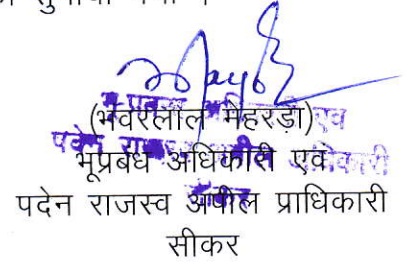 (भंवरलाल मेहरड़ा)
भूप्रबंध अधिकारी एवं
पदेन राजस्व अपील प्राधिकारी
सीकर